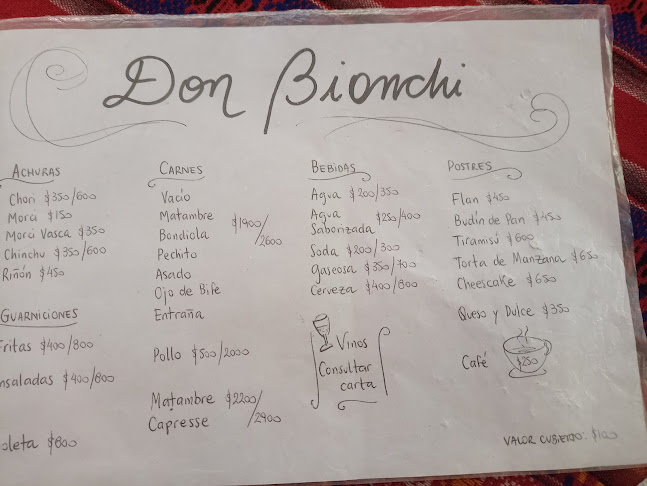 Don Bianchi
ACHURAS
Chori $350/600
Morci $150
Morci Vasca $350
Chinchu $350/600
Riñón $450
GUARNICIONES
Fritas $400/800
nsaladas $400/800
oleta $800
CARNES
Vacío
Matambre
Bondiola
Pechito
Asado
Ojo de Bife
Entraña
$1900/
2600
Pollo $500/2000
Matambre $2200/
Capresse /2900
BEBIDAS
Agua $200/350
Agua
Saborizada $250/400
Soda $200/300
gaseosa $350/700
Cerveza $400/800
Vinos
Consultar
carta
POSTRES
Flan $450
Budín de Pan $450
Tiramisú $600
Torta de Manzana $650
Cheescake $650
Queso y Dulce $350
Café $250
VALOR CUBIERTO: $100